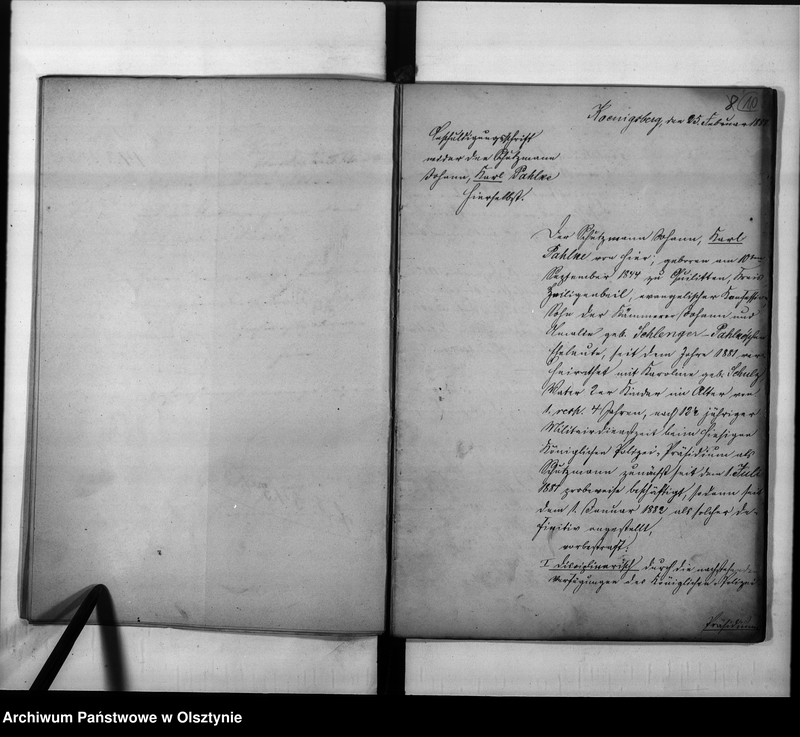 8 10
Koenigsberg, den 25. Februar
Beschuldigungsschrift
wider den Schutzmann
Johann, Karl Pahlke
hierselbst.
Der Schutzmann Johann, Karl
Pahlke von hier, geboren am 10ten
September 1844 zu Quilitten, Kreis
Heiligenbeil, evangelischer Konfession
Sohn der Kämmerer Johann und
Amalie geb. Schlenger-Pahlkeschen
Eheleute, seit dem Jahre 1881 ver-
heirathet mit Karoline geb. Schulz
Vater 2er Kinder im Alter von
1, resp. 4 Jahren, nach 12 jähriger
Militairdienstzeit beim hiesigen
Königlichen Polizei-Präsidium als
Schutzmann zunächst seit dem 1. Juli
1881 probeweise beschäftigt, sodann seit
dem 1. Januar 1882 als solcher de-
finitiv angestellt,
vorbestraft:
I disciplinarisch durch die nachstehenden
Verfügungen des Königlichen Polizei-
Präsidiums
Archiwum Państwowe w Olsztynie